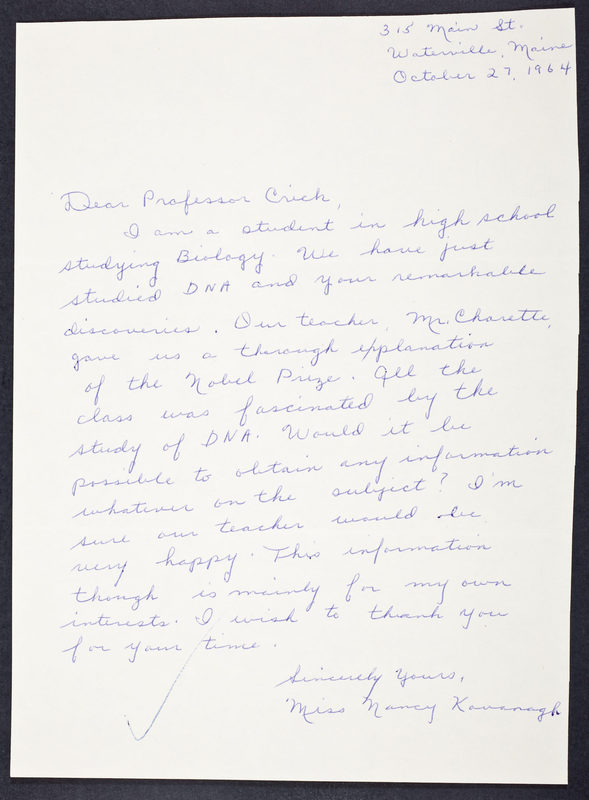 315 Main St.
Waterville, Maine
October 27, 1964
Dear Professor Crick,
I am a student in high school
studying Biology. We have just
studied DNA and your remarkable
discoveries. Our teacher, Mr. Charette,
gave us a thorough explanation
of the Nobel Prize. All the
class was fascinated by the
study of DNA. Would it be
possible to obtain any information
whatever on the subject? I'm
sure our teacher would be
very happy. This information
though is mainly for my own
interests. I wish to thank you
for your time.
Sincerely Yours,
Miss Nancy Kavanagh